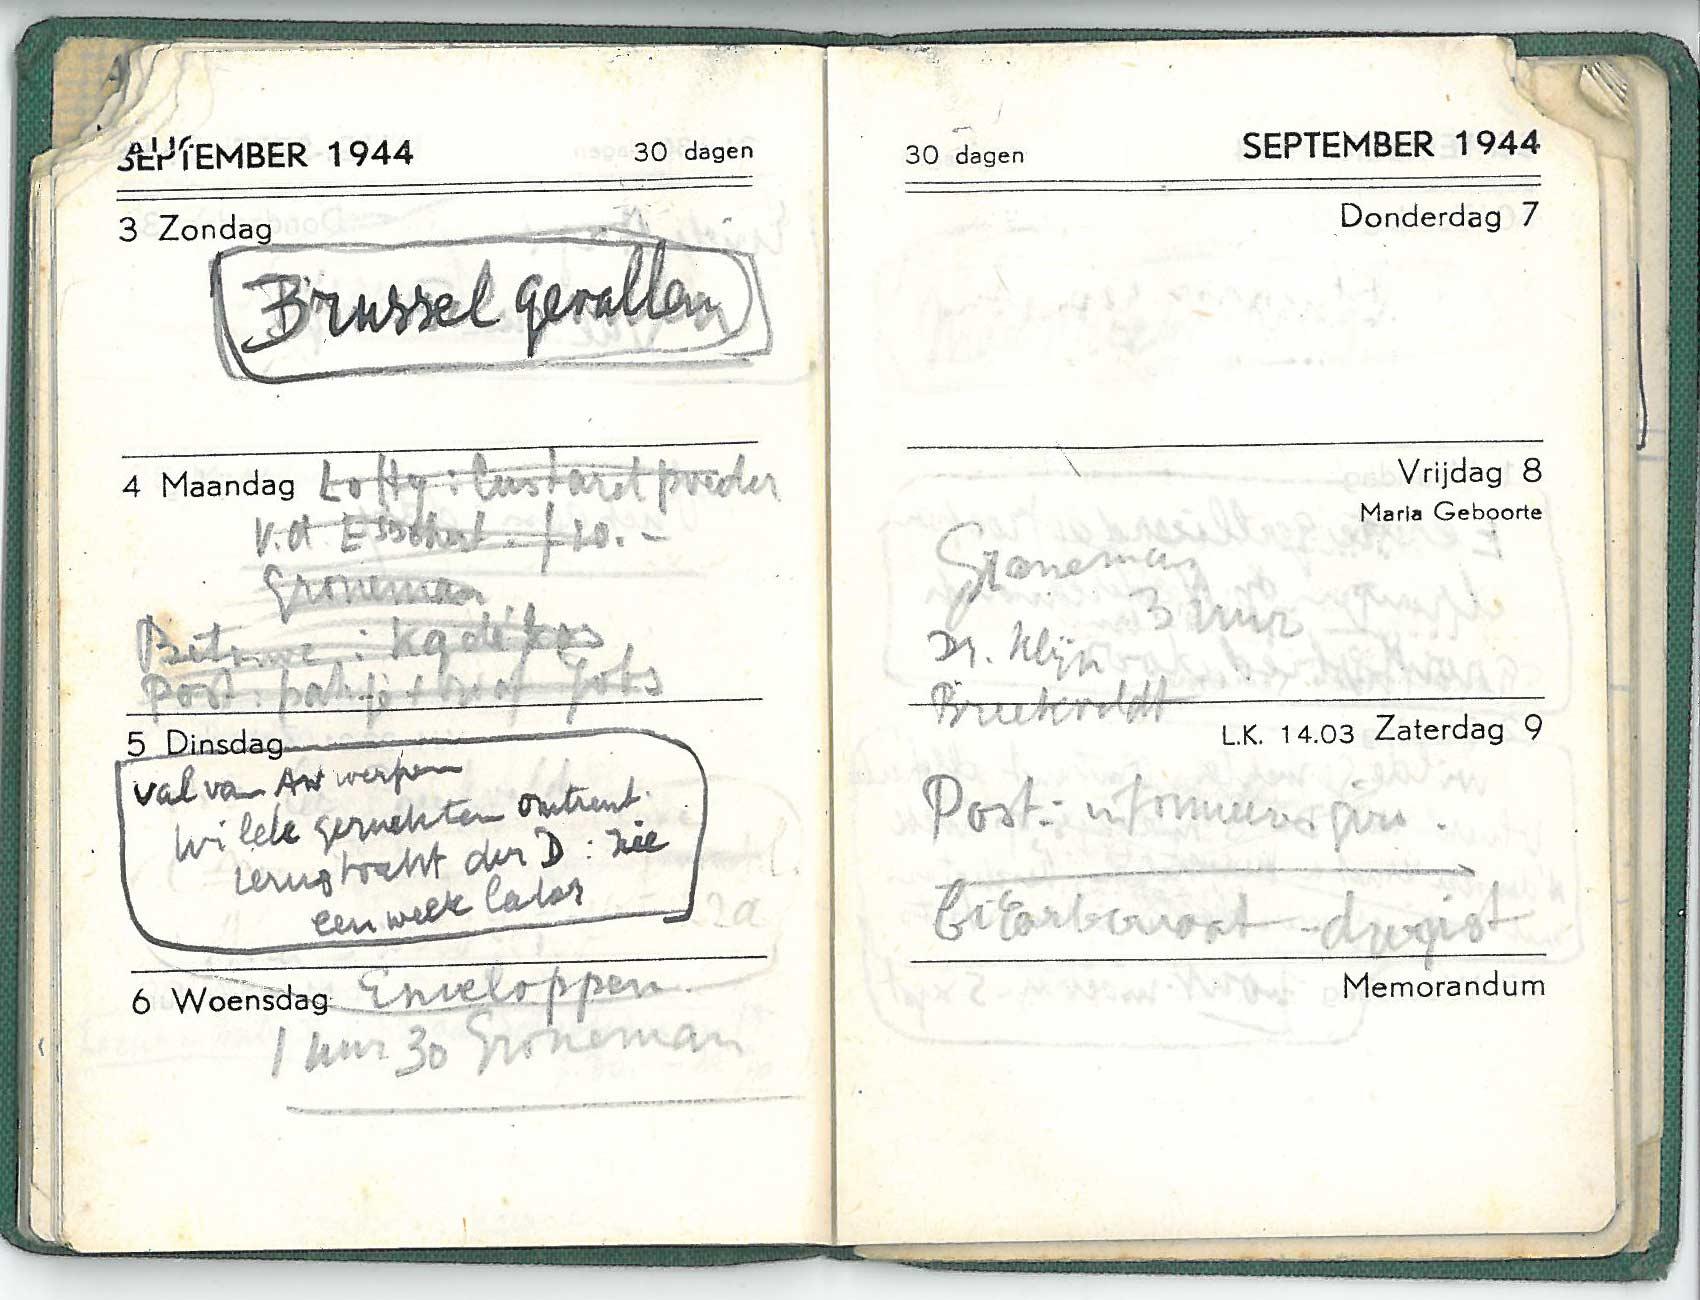 SEPTEMBER 1944 30 dagen
3 Zondag
Brussel gevallen
4 Maandag Lotty : Custard poeder
v.d. Esschert f 10.-
Groneman
: kg
Post : pakje + brief Jobs
5 Dinsdag
val van Antwerpen
Wilde geruchten omtrent
terugtocht der D : zie
een week later
6 Woensdag Enveloppen.
1 uur 30 Groneman
30 dagen SEPTEMBER 1944
Donderdag 7
Vrijdag 8
Maria Geboorte
Groneman
3 uur
Dr. Klijn
L.K. 14.03 Zaterdag 9
Post - informeer giro.
bicarbonaat - drogist
Memorandum